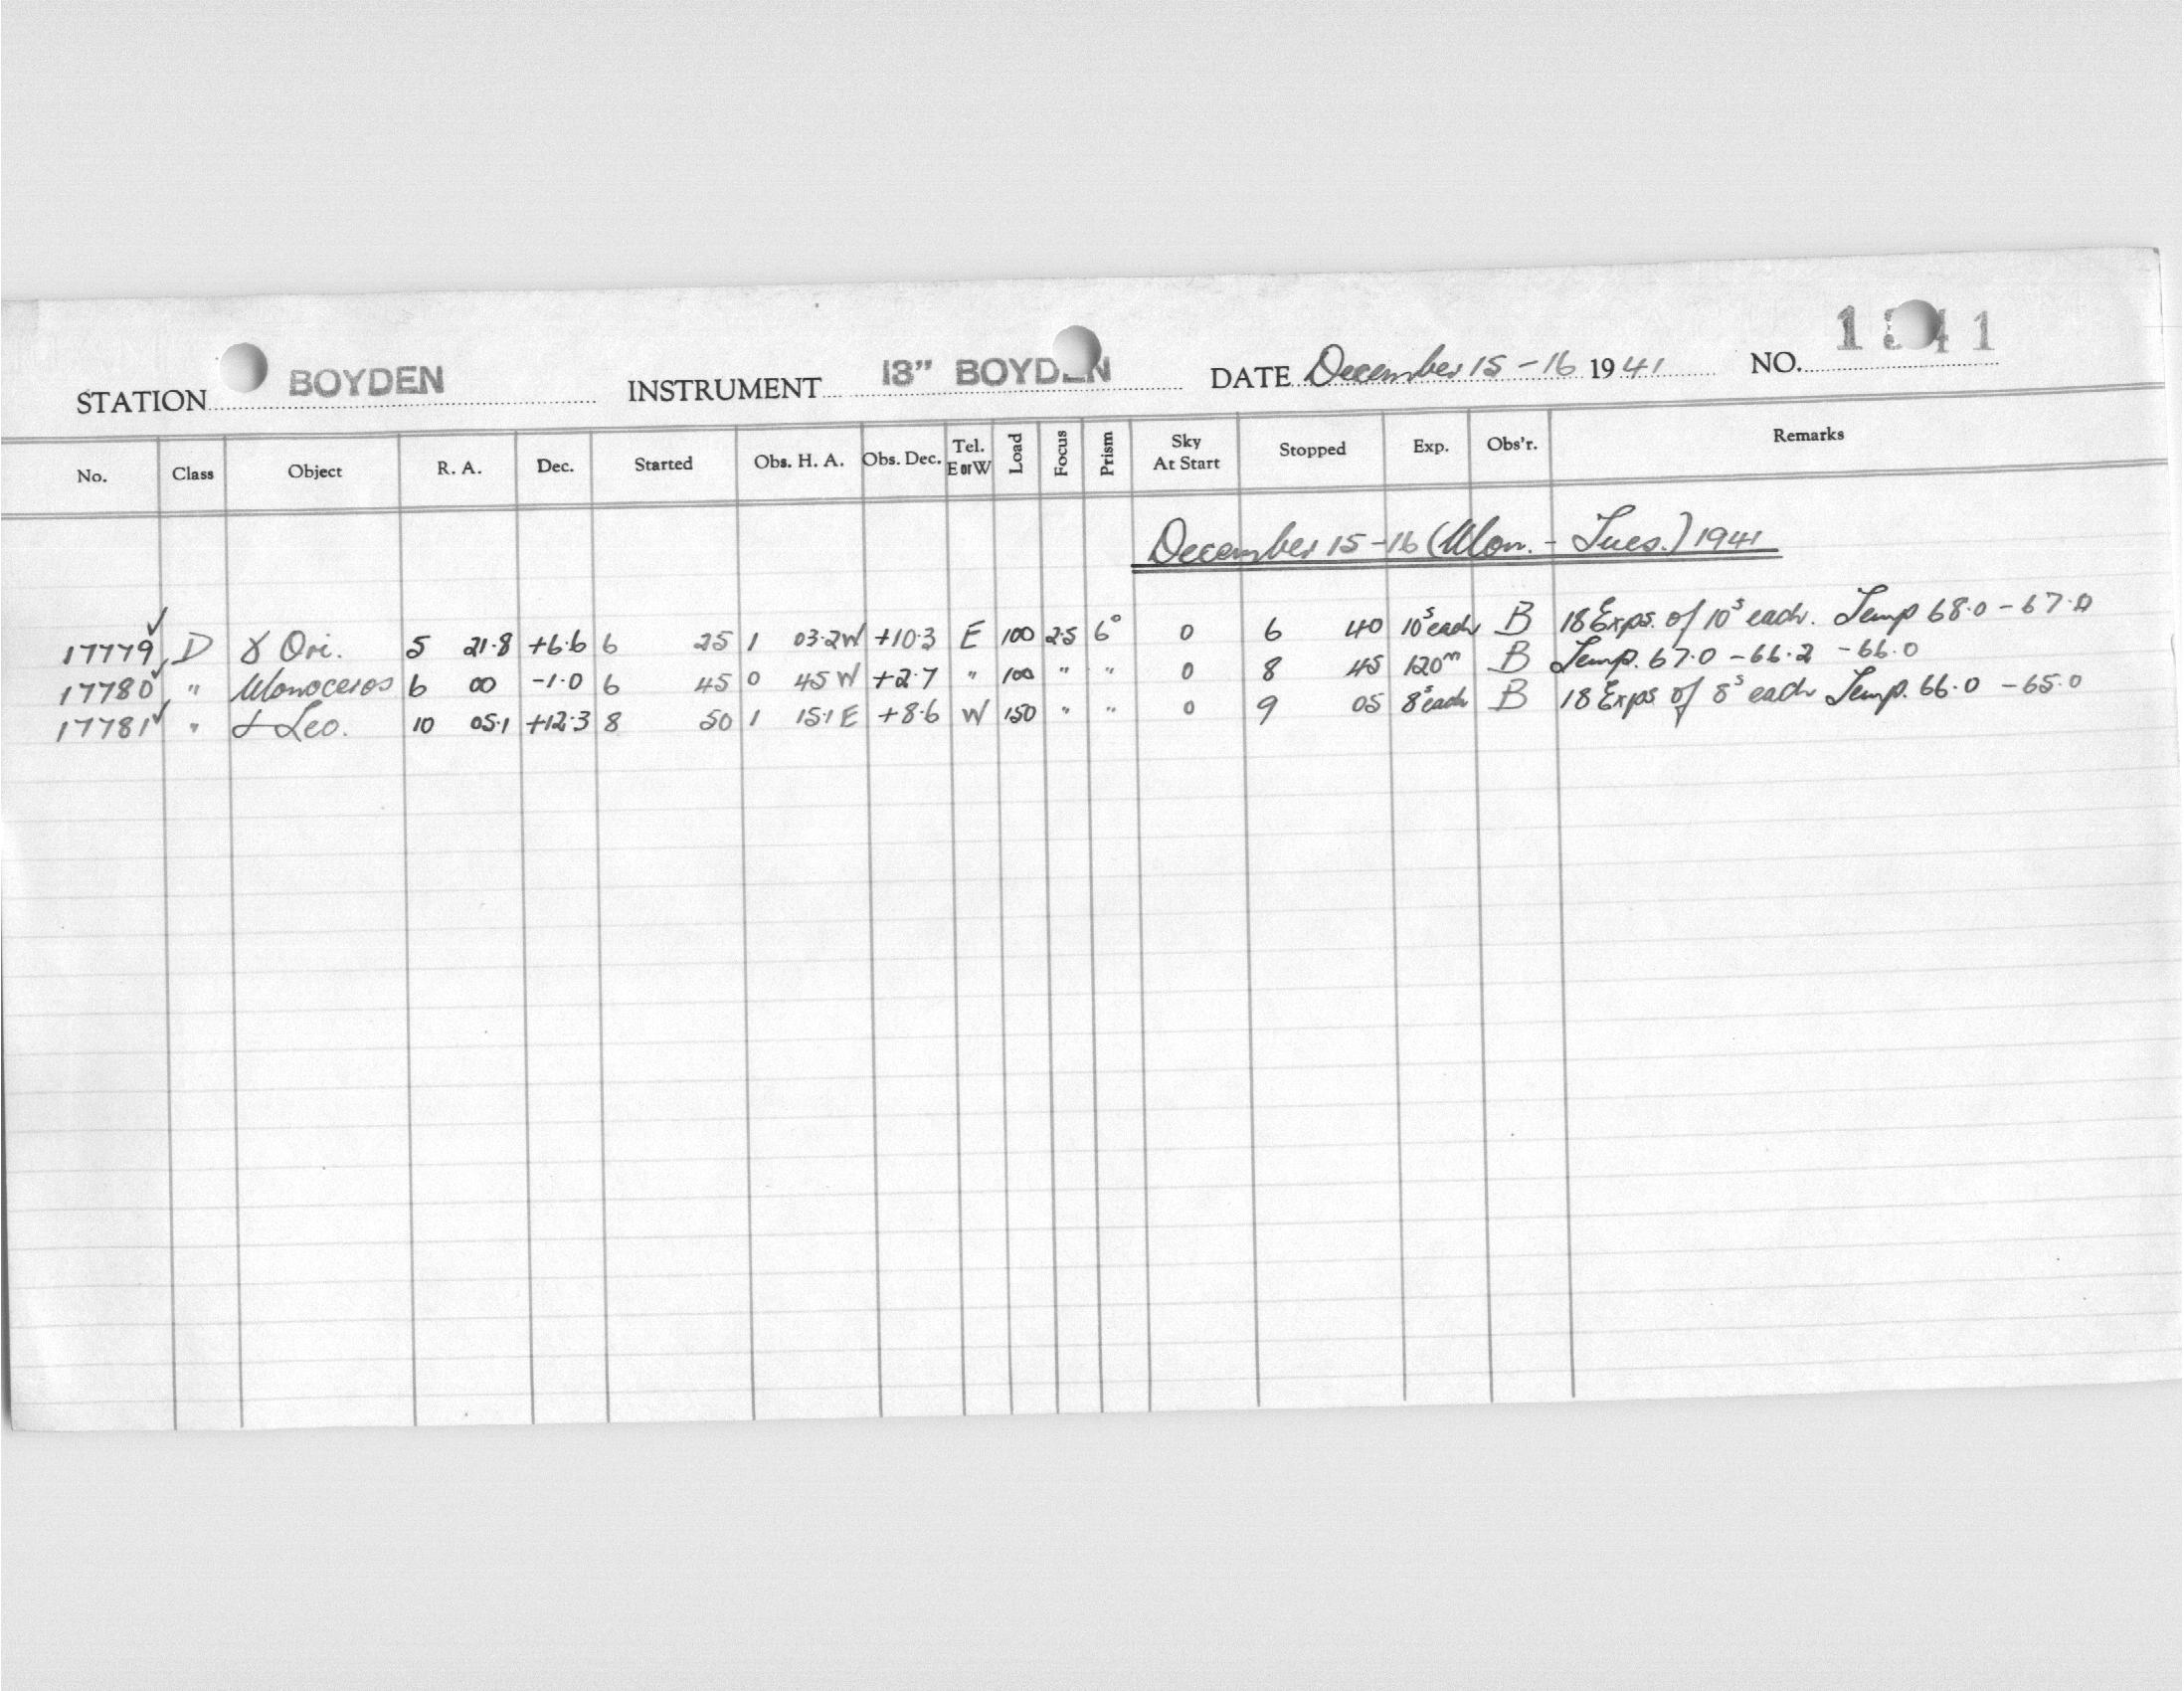 STATION BOYDEN INSTRUMENT 13" BOYDEN DATE December 15-16 1941 NO. 1 41
No. Class Object R. A. Dec. Started Obs. H. A. Obs. Dec. Tel. E or W Load Focus Prism Sky At Start Stopped Exp. Obs'r. Remarks
December 15-16 (Mon. - Tues.) 1941
17779 ✓ D γ Ori. 5 21.8 +6.6 6 25 1 03.2W +10.3 E 100 2.5 6° 0 6 40 10s each B 18 Exps. of 10s each. Temp 68.0 - 67.0
17780 ✓ " Monoceros 6 00 -1.0 6 45 0 45 W +2.7 " 100 " " 0 8 45 120m B Temp. 67.0 - 66.2 - 66.0
17781 ✓ " α Leo. 10 05.1 +12.3 8 50 1 15.1 E +8.6 W 150 " " 0 9 05 8s each B 18 Exps of 8s each Temp. 66.0 - 65.0